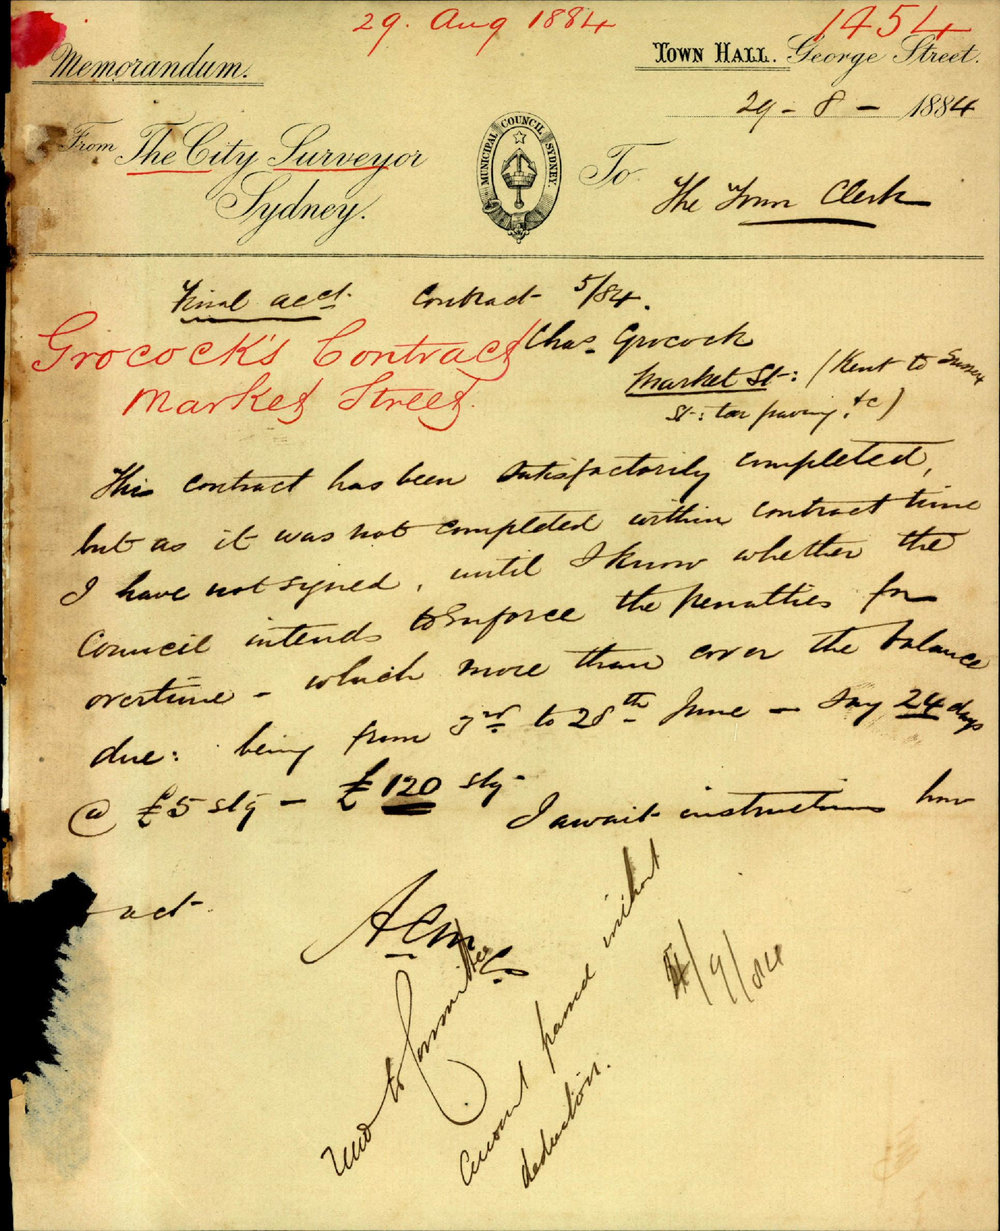 29. Aug 1884
1454
Memorandum.
TOWN HALL. George Street.
29 - 8 - 1884
From The City Surveyor
Sydney.
MUNICIPAL COUNCIL SYDNEY.
To
The Town Clerk
Final acct. Contract 5/84.
Grocock's Contract
Market Street.
Chas Grocock
Market St: (Kent to Sussex
St: tar paving &c)
This contract has been satisfactorily completed,
but as it was not completed within contract time
I have not signed, until I know whether the
Council intends to enforce the penalties for
overtime - which more than cover the balance
due: being from 3rd to 28th June - Say 24 days
@ £5 stg - £120 stg - I await instructions how
act.
to Committee
Account passed without
deduction.
4/9/84